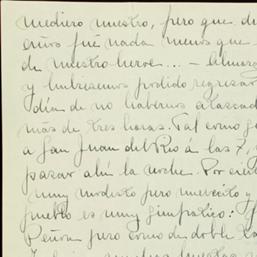 mediero nuestro, pero que du
años fué nada menos que
de nuestro heroe ... - almorz
y hubiésemos podido regresar
día de no habernos atascad
más de tres horas. Tal como
a San Juan del Río á las 7,
pasar ahí la noche. Por cie
muy modesto pero nuevecito y
pueblo es muy simpático:
Peñon pero como de doble ta